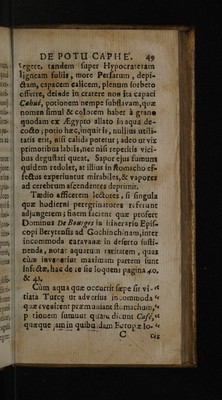 DE POTU CAPHE. 49
legere, tandem super Hypocrateiam
ligneam fuliis, more Persarum, depi-
ctam, capacem calicem, plenum sorbeto
offerre, deinde in cratere non ita capaci
Cahué, potionem nempe subflavam, quæ
nomen simul & colorem habet à grano
quodam ex Ægypto allato in aqua de-
cocto; potio hæc, inquit is, nullius utili-
tatis erit, nisi calida potetur; adeo ut vix
primoribus labiis, nec nisi repetitis vici-
bus degustari queat. Sapor ejus fumum
quidem redolet, at illius in stomacho ef-
fectus experiuntur mirabiles, & vapores
ad cerebrum ascendentes deprimit.
Tædio afficerem lectores, si singula
quæ hodierni peregrinatores referunt
adjungerem; finem facient quæ profert
Dominus De Bourges in itinerario Epis-
copi Berytensis ad Cochinchinam, inter
incommoda caravanæ in deserto susti-
nenda, notat aquarum raritatem, quas
cùm invenerint maximam partem sunt
infectæ, hac de re sic loquens pagina 40.
& 41.
Cùm aqua quæ occurrit sæpe sit vi-"
tiata Turcę ut adversus incommoda"
quæ evenirent præmuniant stomachum,"
potionem sumunt quam dicunt Café,"
quæque jam in quibusdam Europæ lo-"
C cis